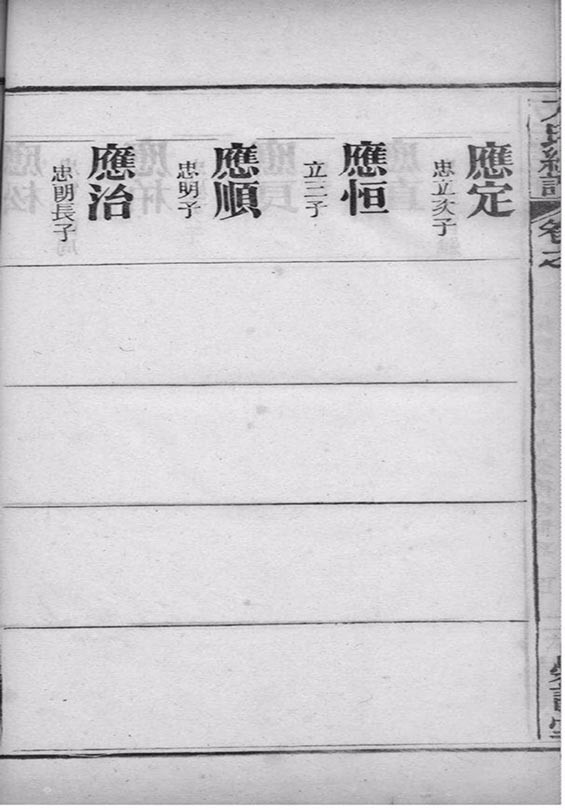 卷之
應定
忠立次子
應恒
立三子
應順
忠明子
應治
忠朗長子